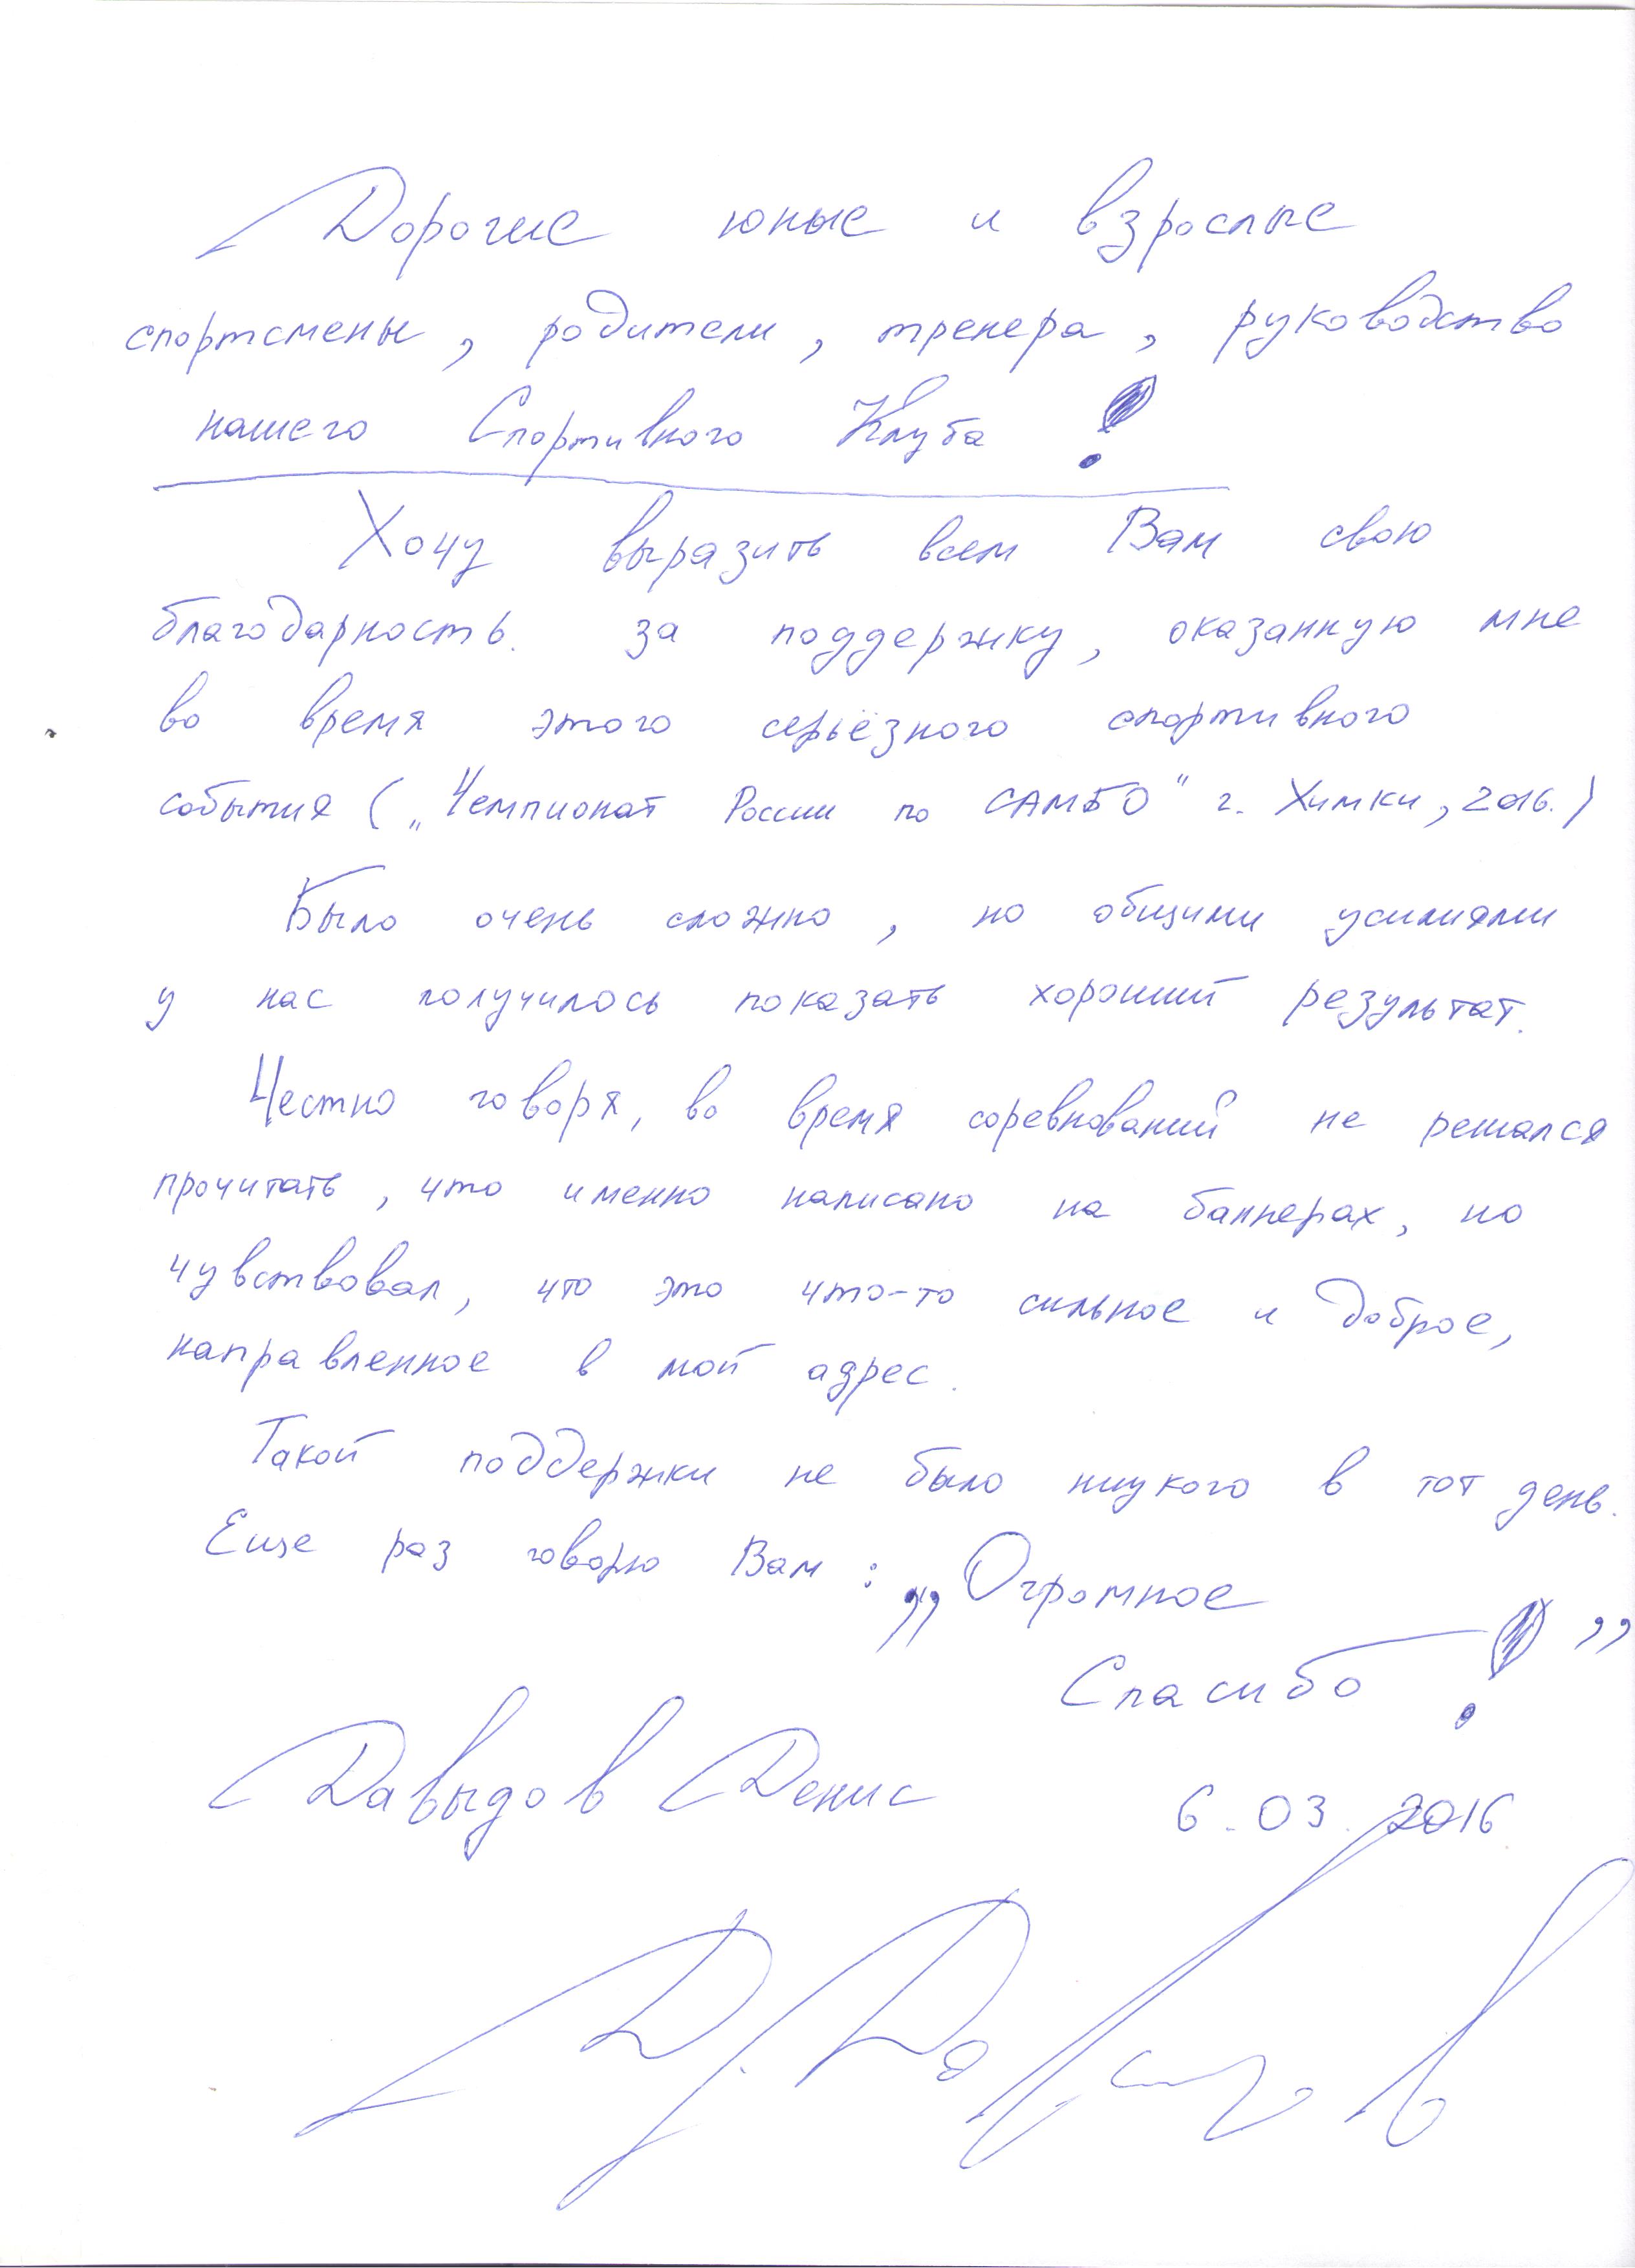 Дорогие юные и взрослые
спортсмены, родители, тренера, руководство
нашего Спортивного Клуба!
Хочу выразить всем Вам свою
благодарность. за поддержку, оказанную мне
во время этого серьёзного спортивного
события („Чемпионат России по САМБО" г. Химки, 2016.)
Было очень сложно, но общими усилиями
у нас получилось показать хороший результат.
Честно говоря, во время соревнований не решался
прочитать, что именно написано на баннерах, но
чувствовал, что это что-то сильное и доброе,
направленное в мой адрес.
Такой поддержки не было ниукого в тот день.
Еще раз говорю Вам: „Огромное
Спасибо!"
Давыдов Денис 6.03.2016
Д. Давыдов